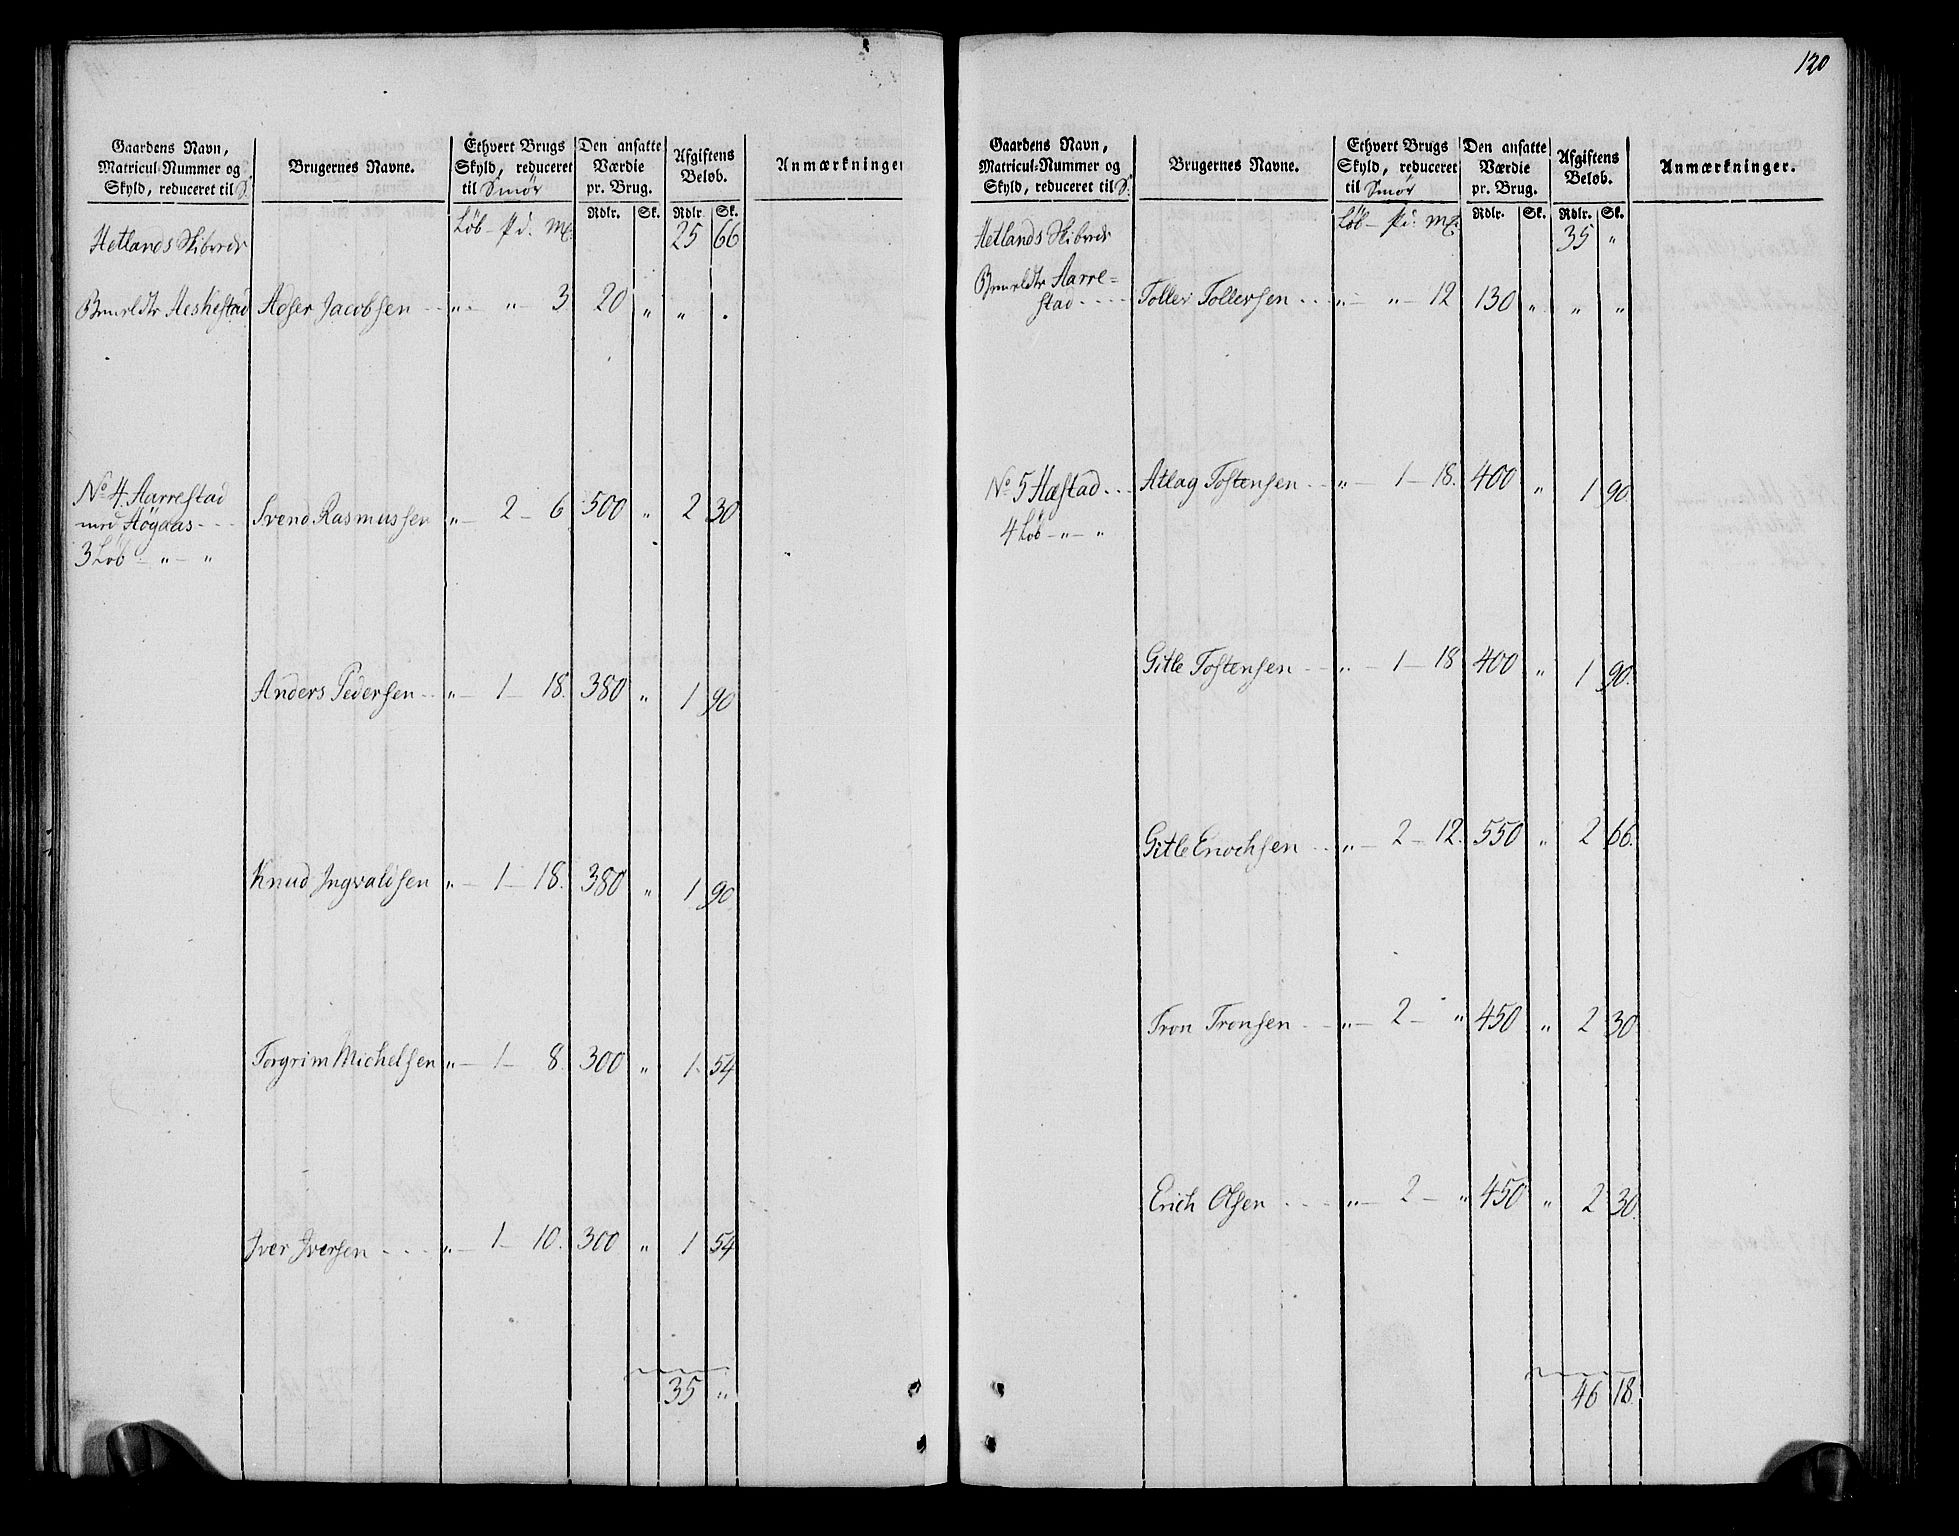 Gaardens Navn, Matricul-Nummer og Skyld, reduceret til S. | Brugernes Navne. | Ethvert Brugs Skyld, reduceret til Smör | Den ansatte Værdie pr. Brug. | Afgiftens Beløb. | Anmærkninger
Rdlr. | Sk. | Rdlr. | Sk.
Hetlands Skibrede | Löb - Pd. Mk. | 25 | 66
Heskestad | Adser Jacobsen | " - " - 3 | 20 | " | " | .
No 4. Aarrestad
med Høgaas | Svend Rasmussen | " - 2 - 6 | 500 | " | 2 | 30
3 Löb - " - "
Anders Pedersen | " - 1 - 18. | 380 | " | 1 | 90
Knud Ingvaldsen | " - 1 - 18. | 380 | " | 1 | 90
Torgrim Michelsen | " - 1 - 8. | 300 | " | 1 | 54
Iver Iversen | " - 1 - 10. | 300 | " | 1 | 54
35 | "
120
Gaardens Navn, Matricul-Nummer og Skyld, reduceret til S. | Brugernes Navne. | Ethvert Brugs Skyld, reduceret til Smör | Den ansatte Værdie pr. Brug. | Afgiftens Beløb. | Anmærkninger.
Rdlr. | Sk. | Rdlr. | Sk.
Hetlands Skibrede | Löb - Pd. Mk. | 35 | "
Aarre=
stad | Tollev Tollevsen | " - " - 12 | 130 | " | " | "
No 5 Hæstad | Atlag Tostensen | " - 1 - 18. | 400 | " | 1 | 90.
4 Löb - " - "
Gitle Tostensen | " - 1 - 18 | 400 | " | 1 | 90.
Gitle Enochsen | " - 2 - 12. | 550 | " | 2 | 66.
Tron Tronsen | " - 2 - " | 450 | " | 2 | 30
Erich Olsen | " - 2 - " | 450 | " | 2 | 30.
46 | 18.